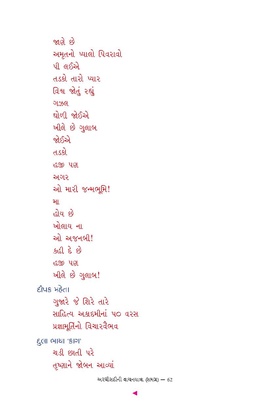 જાણે છે
અમૃતનો પ્યાલો પિવરાવો
પી લઈએ
તડકો તારો પ્યાર
વિશ્વ જોતું રહ્યું
ગઝલ
ઘોળી જોઈએ
ખીલે છે ગુલાબ
જોઈએ
તડકો
હજી પણ
અગર
ઓ મારી જન્મભૂમિ!
મા
હોય છે
ખોલાય ના
ઓ અજનબી!
કહી દે છે
હજી પણ
ખીલે છે ગુલાબ!
દીપક મહેતા
ગુજારે જે શિરે તારે
સાહિત્ય અકાદમીનાં ૫૦ વરસ
પ્રજ્ઞામૂર્તિનો વિચારવૈભવ
દુલા ભાયા 'કાગ'
ચડી છાતી પરે
તૃષ્ણાને જોબન આવ્યાં
અરધીસદીની વાચનયાત્રા (સમગ્ર) — ૬૮